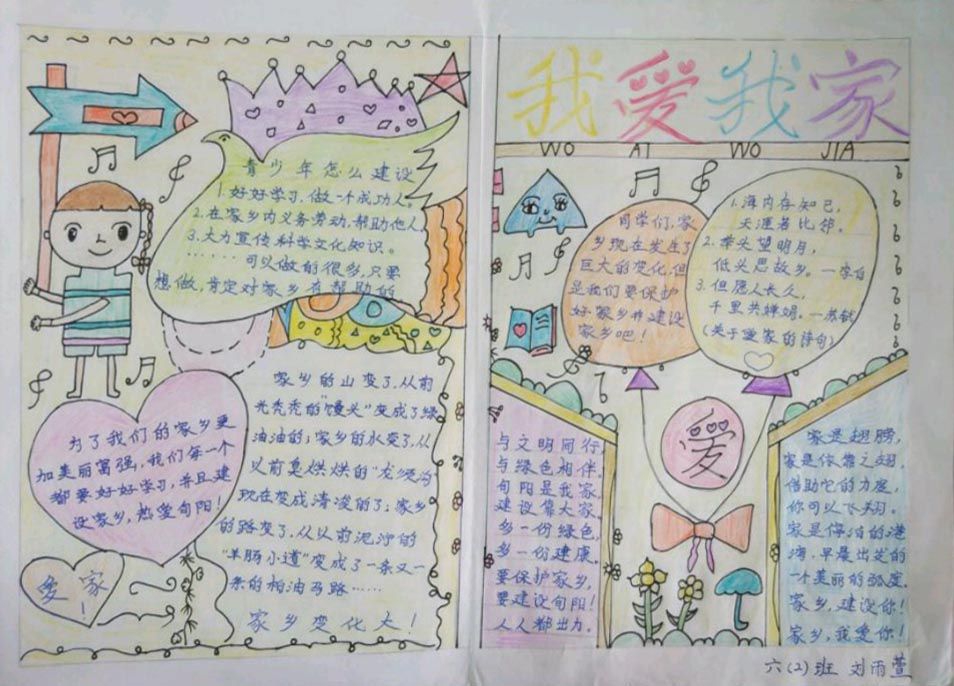 我爱我家
WO AI WO JIA
青少年怎么建设
1.好好学习,做一个成功人。
2.在家乡内义务劳动,帮助他人
3.大力宣传科学文化知识。
……可以做的很多,只要
想做,肯定对家乡有帮助的
为了我们的家乡更
加美丽富强,我们每一个
都要好好学习,并且建
设家乡,热爱旬阳!
爱家!
家乡的山变了,从前
光秃秃的"馒头"变成了绿
油油的;家乡的水变了,从
以前臭烘烘的"龙须沟
现在变成清凌的了;家乡
的路变了,从以前泥泞的
"羊肠小道"变成了一条又一
条的柏油马路……
家乡变化大!
同学们,家
乡现在发生了
巨大的变化,但
是我们要保护
好家乡并建设
家乡吧!
1.海内存知己,
天涯若比邻。
2.举头望明月,
低头思故乡。—李白
3.但愿人长久,
千里共婵娟。—苏轼
(关于爱家的诗句)
爱
与文明同行,
与绿色相伴。
旬阳是我家,
建设靠大家。
乡一份绿色,
乡一份健康。
要保护家乡,
要建设旬阳!
人人都出力。
家是翅膀,
家是依靠之翅,
借助它的力度,
你可以飞翔。
家是停泊的港
湾,早晨出发的
一个美丽的弧度。
家乡,建设你!
家乡,我爱你!
六(2)班 刘雨萱